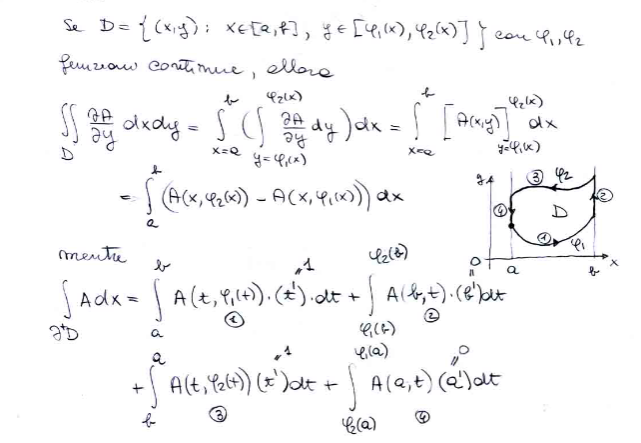 Se D = { (x,y): x∈[a,b], y∈[φ₁(x), φ₂(x)] } con φ₁, φ₂
funzioni continue, allora
∬_D ∂A/∂y dxdy = ∫_{x=a}^{b} ( ∫_{y=φ₁(x)}^{φ₂(x)} ∂A/∂y dy ) dx = ∫_{x=a}^{b} [ A(x,y) ]_{y=φ₁(x)}^{φ₂(x)} dx
= ∫_a^b ( A(x,φ₂(x)) - A(x,φ₁(x)) ) dx
y ③ φ₂ ④ D ② ① φ₁ 0 a b x
mentre
∫_{∂⁺D} A dx = ∫_a^b A(t,φ₁(t))·(t')·dt + ∫_{φ₁(b)}^{φ₂(b)} A(b,t)·(b')dt
" 1 " 0
① ②
+ ∫_b^a A(t,φ₂(t)) (t')dt + ∫_{φ₂(a)}^{φ₁(a)} A(a,t) (a')dt
" 1 " 0
③ ④